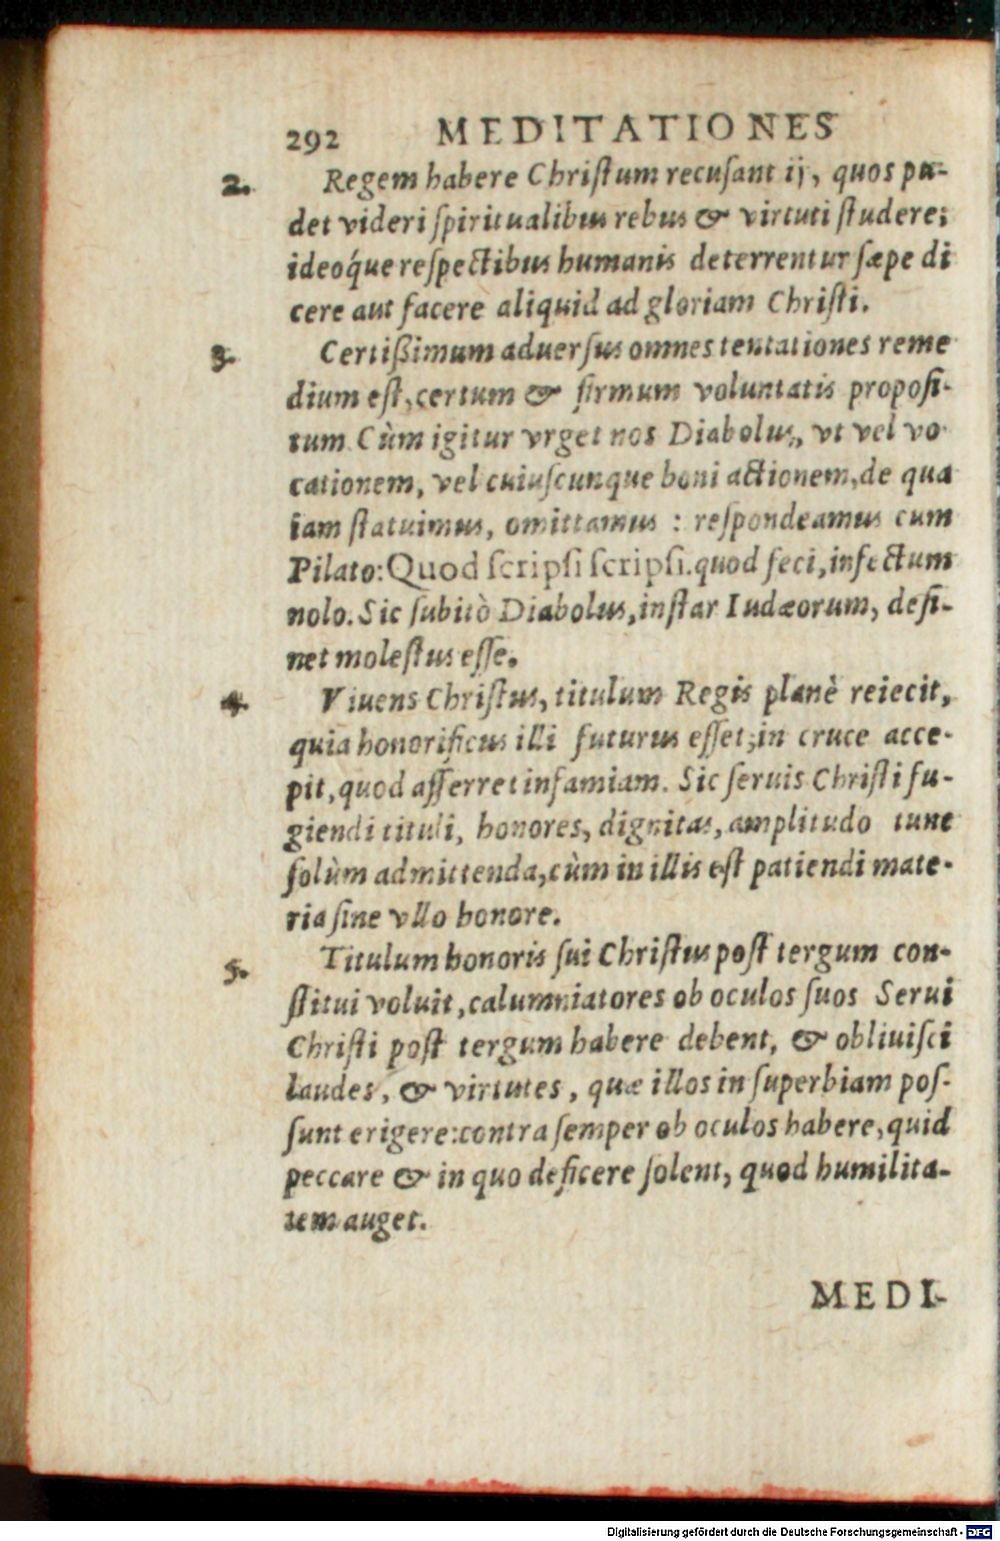 292 MEDITATIONES
2. Regem habere Christum recusant ij, quos pu-
det videri spiritualibus rebus & virtuti studere;
ideoq́ue respectibus humanis deterrentur sæpe di
cere aut facere aliquid ad gloriam Christi.
3. Certißimum aduersus omnes tentationes reme
dium est, certum & firmum voluntatis proposi-
tum. Cùm igitur vrget nos Diabolus, vt vel vo
cationem, vel cuiuscunque boni actionem, de qua
iam statuimus, omittamus : respondeamus cum
Pilato: Quod scripsi scripsi. quod feci, infectum
nolo. Sic subitò Diabolus, instar Iudæorum, desi-
net molestus esse.
4. Viuens Christus, titulum Regis planè reiecit,
quia honorificus illi futurus esset; in cruce acce-
pit, quod afferret infamiam. Sic seruis Christi fu-
giendi tituli, honores, dignitas, amplitudo tunc
solùm admittenda, cùm in illis est patiendi mate-
ria sine vllo honore.
5. Titulum honoris sui Christus post tergum con-
stitui voluit, calumniatores ob oculos suos Serui
Christi post tergum habere debent, & obliuisci
laudes, & virtutes, quæ illos in superbiam pos-
sunt erigere: contra semper ob oculos habere, quid
peccare & in quo deficere solent, quod humilita-
tem auget.
MEDI-
Digitalisierung gefördert durch die Deutsche Forschungsgemeinschaft - DFG